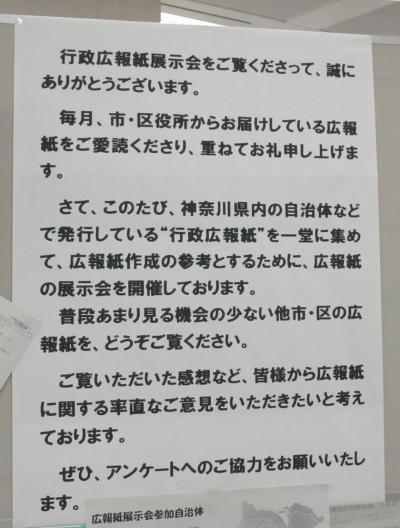 行政広報紙展示会をご覧くださって、誠に
ありがとうございます。
毎月、市・区役所からお届けしている広報
紙をご愛読くださり、重ねてお礼申し上げま
す。
さて、このたび、神奈川県内の自治体など
で発行している“行政広報紙”を一堂に集め
て、広報紙作成の参考とするために、広報紙
の展示会を開催しております。
普段あまり見る機会の少ない他市・区の広
報紙を、どうぞご覧ください。
ご覧いただいた感想など、皆様から広報紙
に関する率直なご意見をいただきたいと考え
ております。
ぜひ、アンケートへのご協力をお願いいたし
ます。
広報紙展示会参加自治体